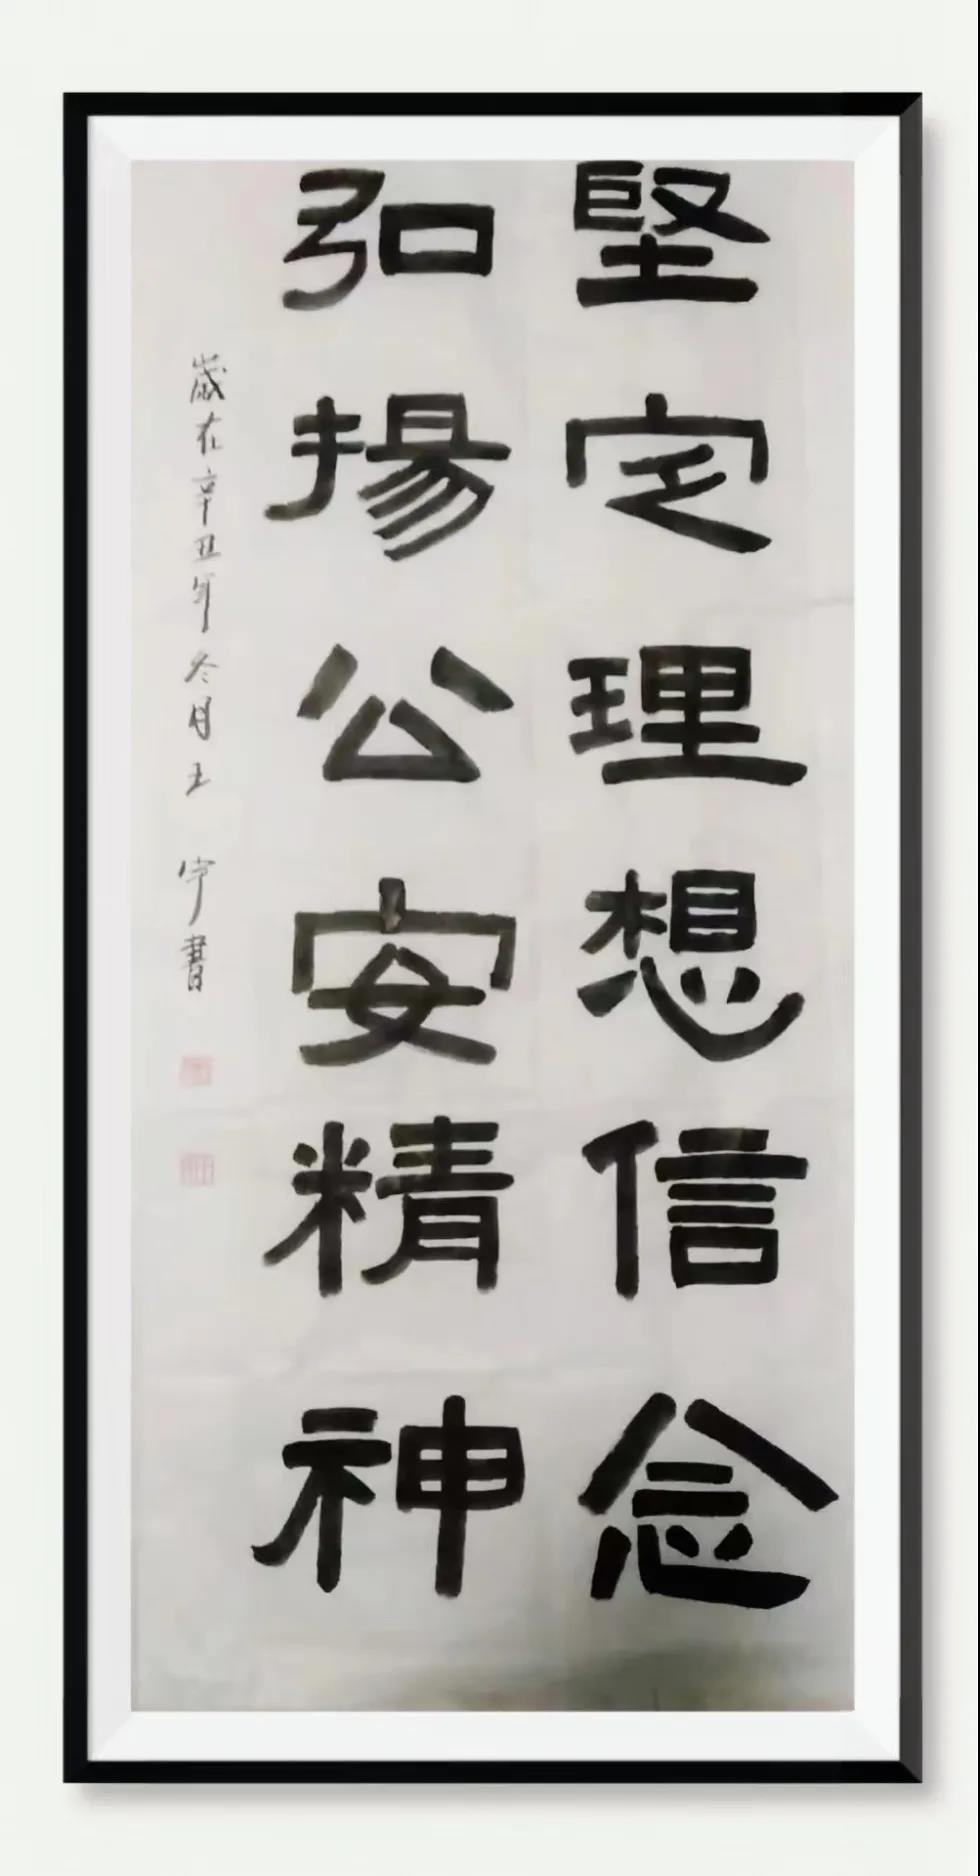 堅定理想信念
弘揚公安精神
歲在辛丑年冬月王宁書